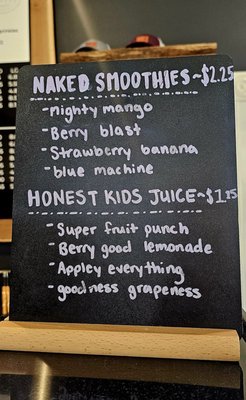 NAKED SMOOTHIES ~ $2.25
- nighty mango
- Berry blast
- Strawberry banana
- blue machine
HONEST KIDS JUICE ~ $1.75
- Super fruit punch
- Berry good lemonade
- Appley everything
- goodness grapeness